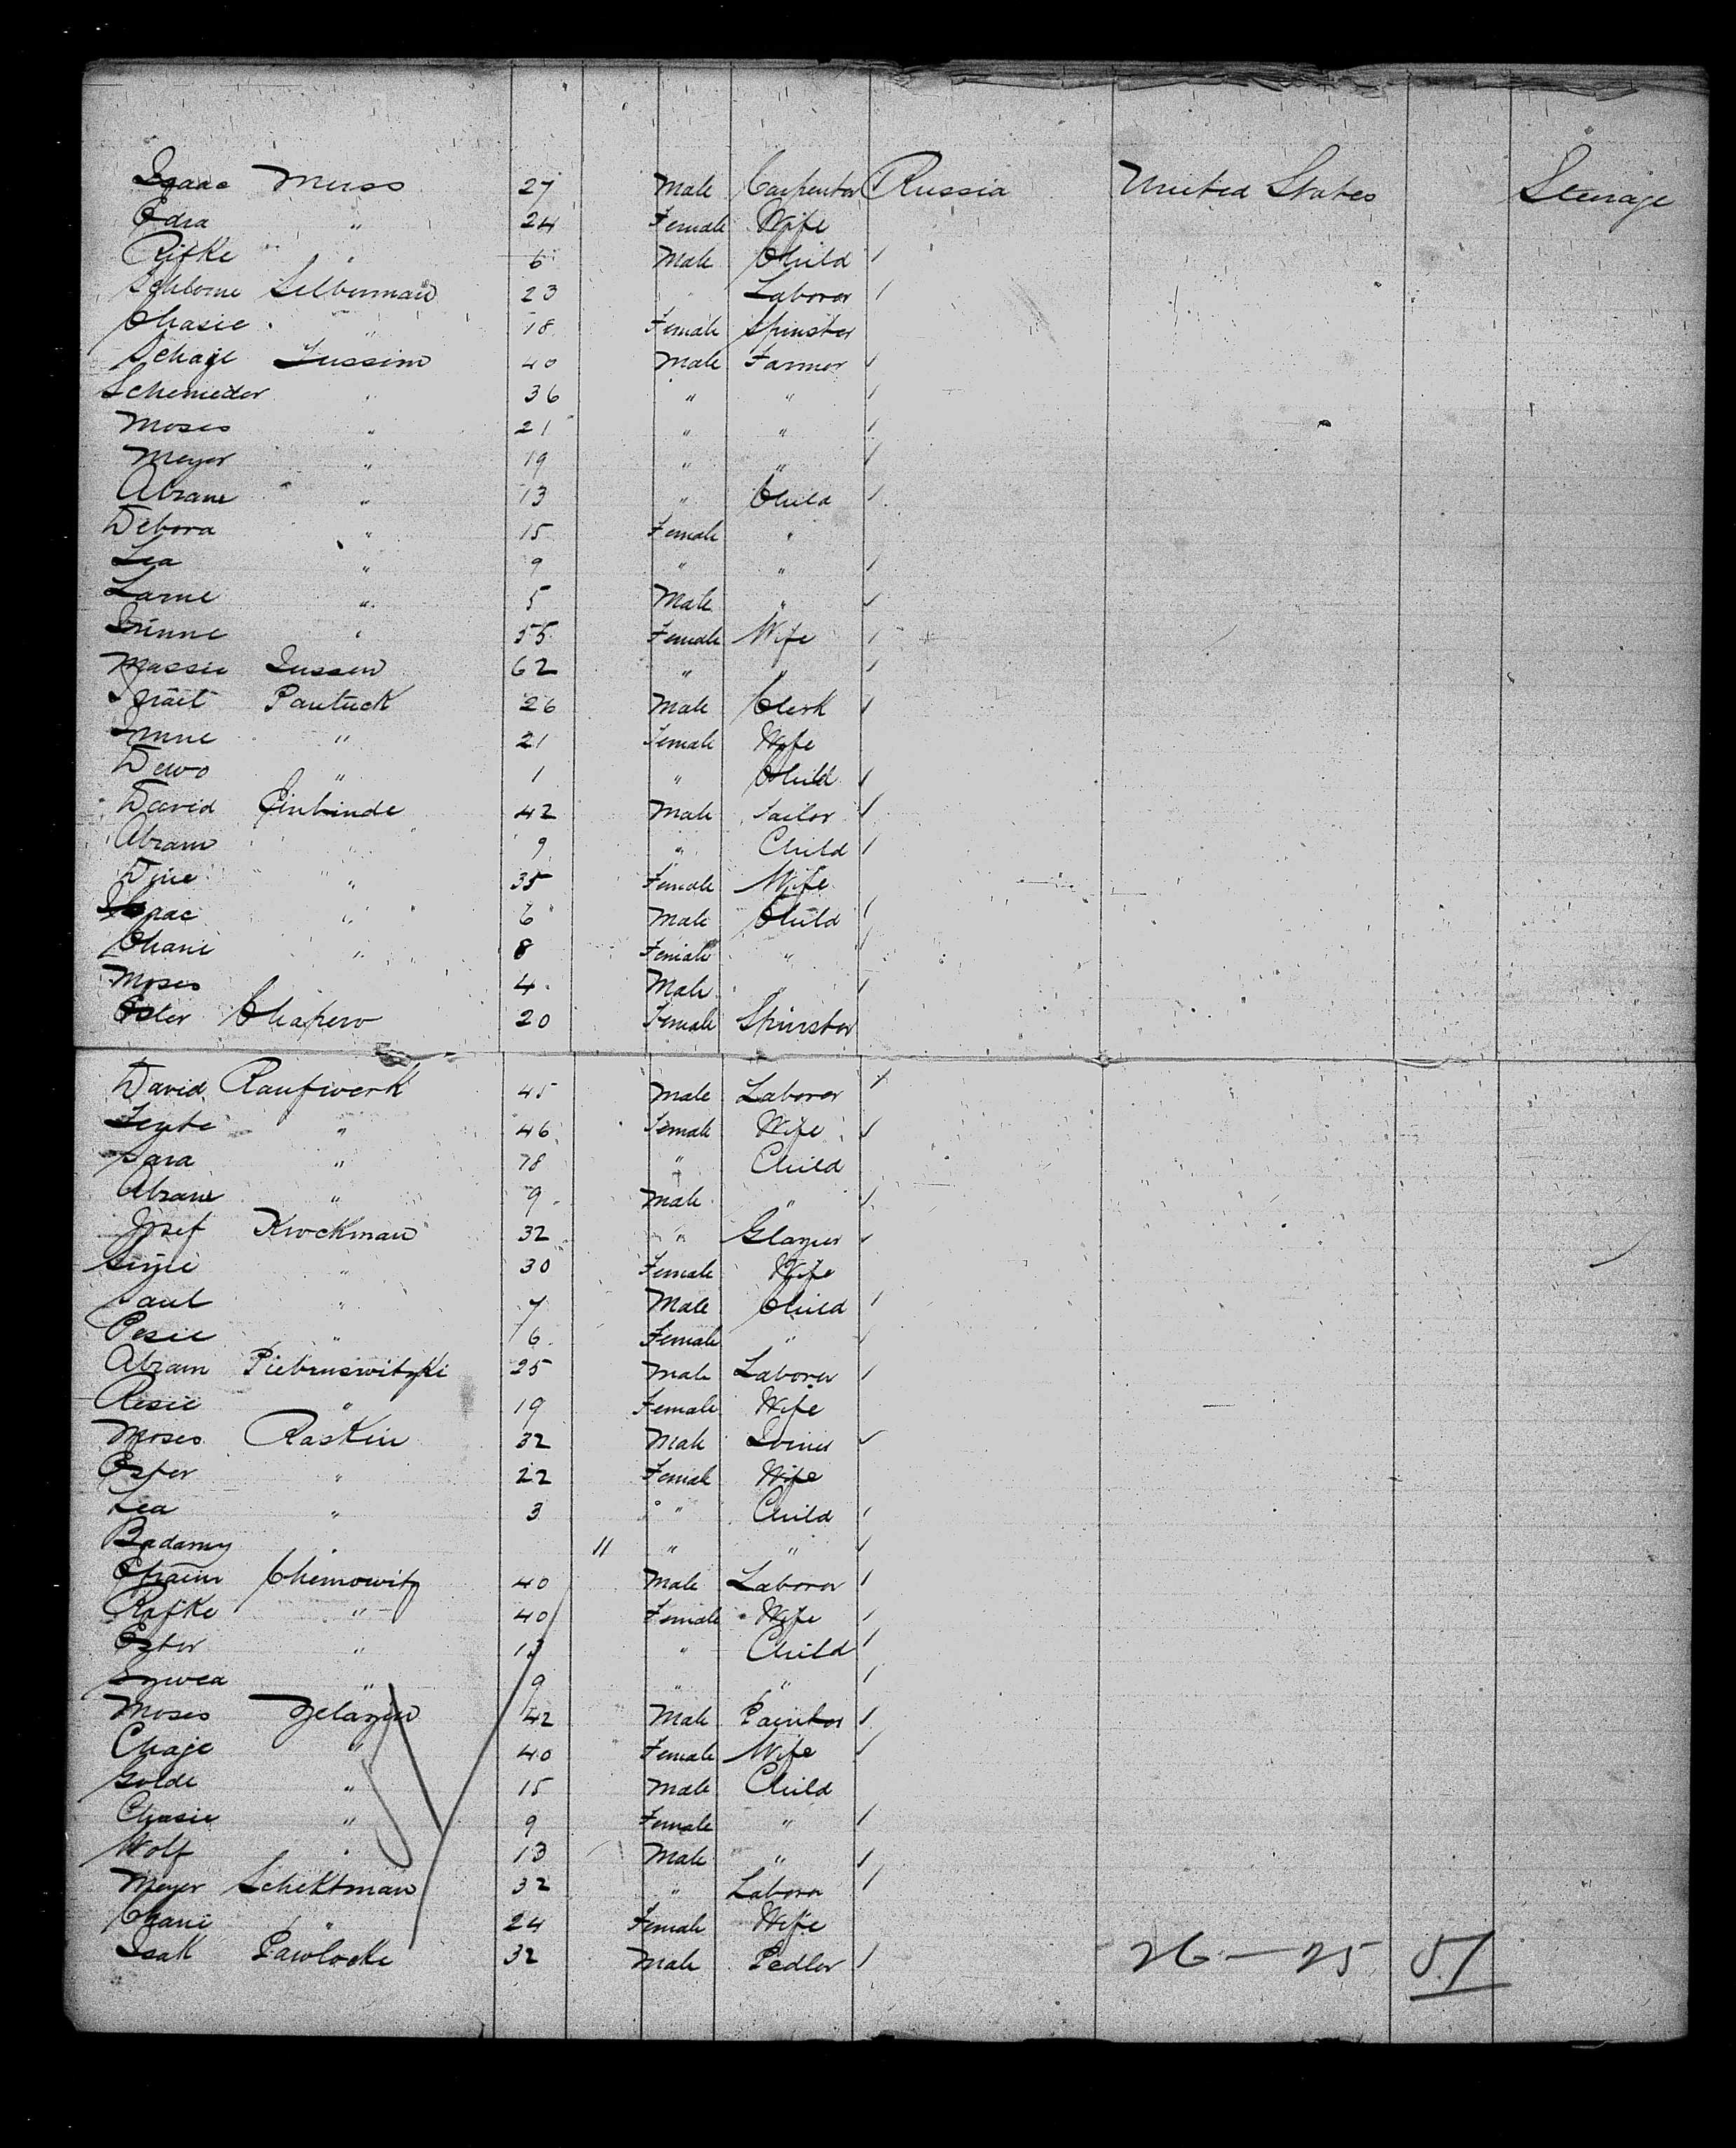 Isaac Muss 27 Male Carpenter Russia United States Steerage
Edra " 24 Female Wife
Rifke " 6 Male Child
Schlome Silberman 23 " Laborer
Chasie " 18 Female Spinster
Schaje Jussim 40 Male Farmer
Schemeder " 36 " "
Moses " 21 " "
Meyer " 19 " "
Abram " 13 " Child
Debora " 15 Female "
Lea " 9 " "
Lame " 5 Male "
" 55 Female Wife
Massie Jussem 62 " "
Pantuck 26 Male Clerk
" 21 Female Wife
Dewo " 1 " Child
David Einbinde 42 Male Tailor
Abram " 9 " Child
Dine " 35 Female Wife
Isaac " 6 Male Child
Chane " 8 Female "
Moses 4 Male "
Ester Chapero 20 Female Spinster
David Raufwerk 45 Male Laborer
Tente " 46 Female Wife
Sara " 18 " Child
Abram " 9 Male "
Josef Krockman 32 " Glazier
" 30 Female Wife
Saul " 7 Male Child
Pesie " 6 Female "
Abram Piebruswitzki 25 Male Laborer
Resie " 19 Female Wife
Moses Raskin 32 Male Joiner
Ester " 22 Female Wife
Lea " 3 " Child
Badamy " 11 " "
Efraim Chemowitz 40 Male Laborer
Rifke " 40 Female Wife
Ester " 13 " Child
" 9 " "
Moses Zelazin 42 Male Painter
Chaje " 40 Female Wife
Golde " 15 Male Child
Chasie " 9 Female "
Wolf " 13 Male "
Meyer Schektman 32 " Laborer
Chane " 24 Female Wife
Isak Pawlocke 32 Male Pedler
26 — 25 51